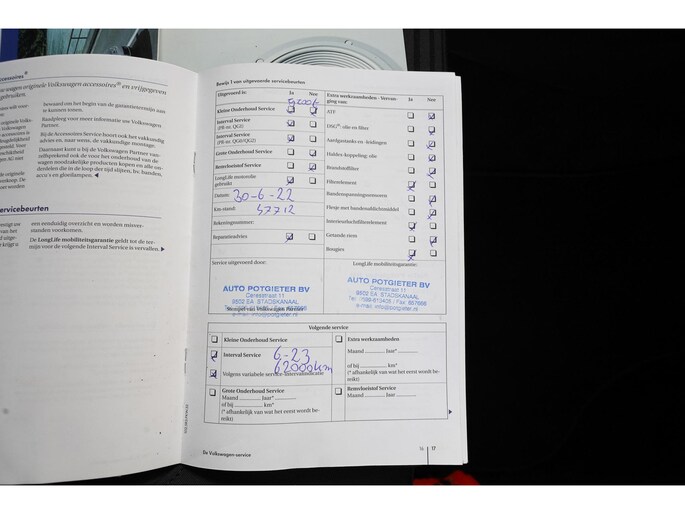 accessoires®
wagen originele Volkswagen accessoires® en vrijgegeven
gebruiken
bewaard om het begin van de garantietermijn aan
te kunnen tonen.
Raadpleeg voor meer informatie uw Volkswagen
Partner.
Bij de Accessoires Service hoort ook het vakkundig
advies en, naar wens, de vakkundige montage.
Daarnaast kunt u bij de Volkswagen Partner van-
zelfsprekend ook de voor het onderhoud van de
wagen noodzakelijke producten kopen en alle on-
derdelen die in de loop der tijd slijten, bv. banden,
accu's en gloeilampen. ◀
servicebeurten
een eenduidig overzicht en worden misver-
standen voorkomen.
De LongLife mobiliteitsgarantie geldt tot de ter-
mijn voor de volgende Interval Service is vervallen. ▶
Bewijs 1 van uitgevoerde servicebeurten
Uitgevoerd is: Ja Nee
Kleine Onderhoud Service
Interval Service
(PR-nr. QG1)
Interval Service
(PR-nr. QG0/QG2)
Grote Onderhoud Service
Remvloeistof Service
LongLife motorolie
gebruikt
Datum: 30-6-22
Km-stand: 47712
Rekeningnummer:
Reparatieadvies
Service uitgevoerd door:
AUTO POTGIETER BV
Ceresstraat 11
9502 EA STADSKANAAL
Stempel van Volkswagen Partner
Extra werkzaamheden - Vervan-
ging van: Ja Nee
ATF
DSG®: olie en filter
Aardgastanks en -leidingen
Haldex-koppeling: olie
Brandstoffilter
Filterelement
Bandenspanningssensoren
Flesje met bandenafdichtmiddel
Interieurluchtfilterelement
Getande riem
Bougies
LongLife mobiliteitsgarantie:
AUTO POTGIETER BV
Ceresstraat 11
9502 EA STADSKANAAL
Volgende service
Kleine Onderhoud Service
Interval Service 6-23
62000km
Volgens variabele service-intervalindicatie
Grote Onderhoud Service
Maand .......... Jaar* ..........
of bij .......... km*
(* afhankelijk van wat het eerst wordt be-
reikt)
Extra werkzaamheden
Maand .......... Jaar* ..........
of bij .......... km*
(* afhankelijk van wat het eerst wordt bereikt)
Remvloeistof Service
Maand .......... Jaar ..........
De Volkswagen-service
17